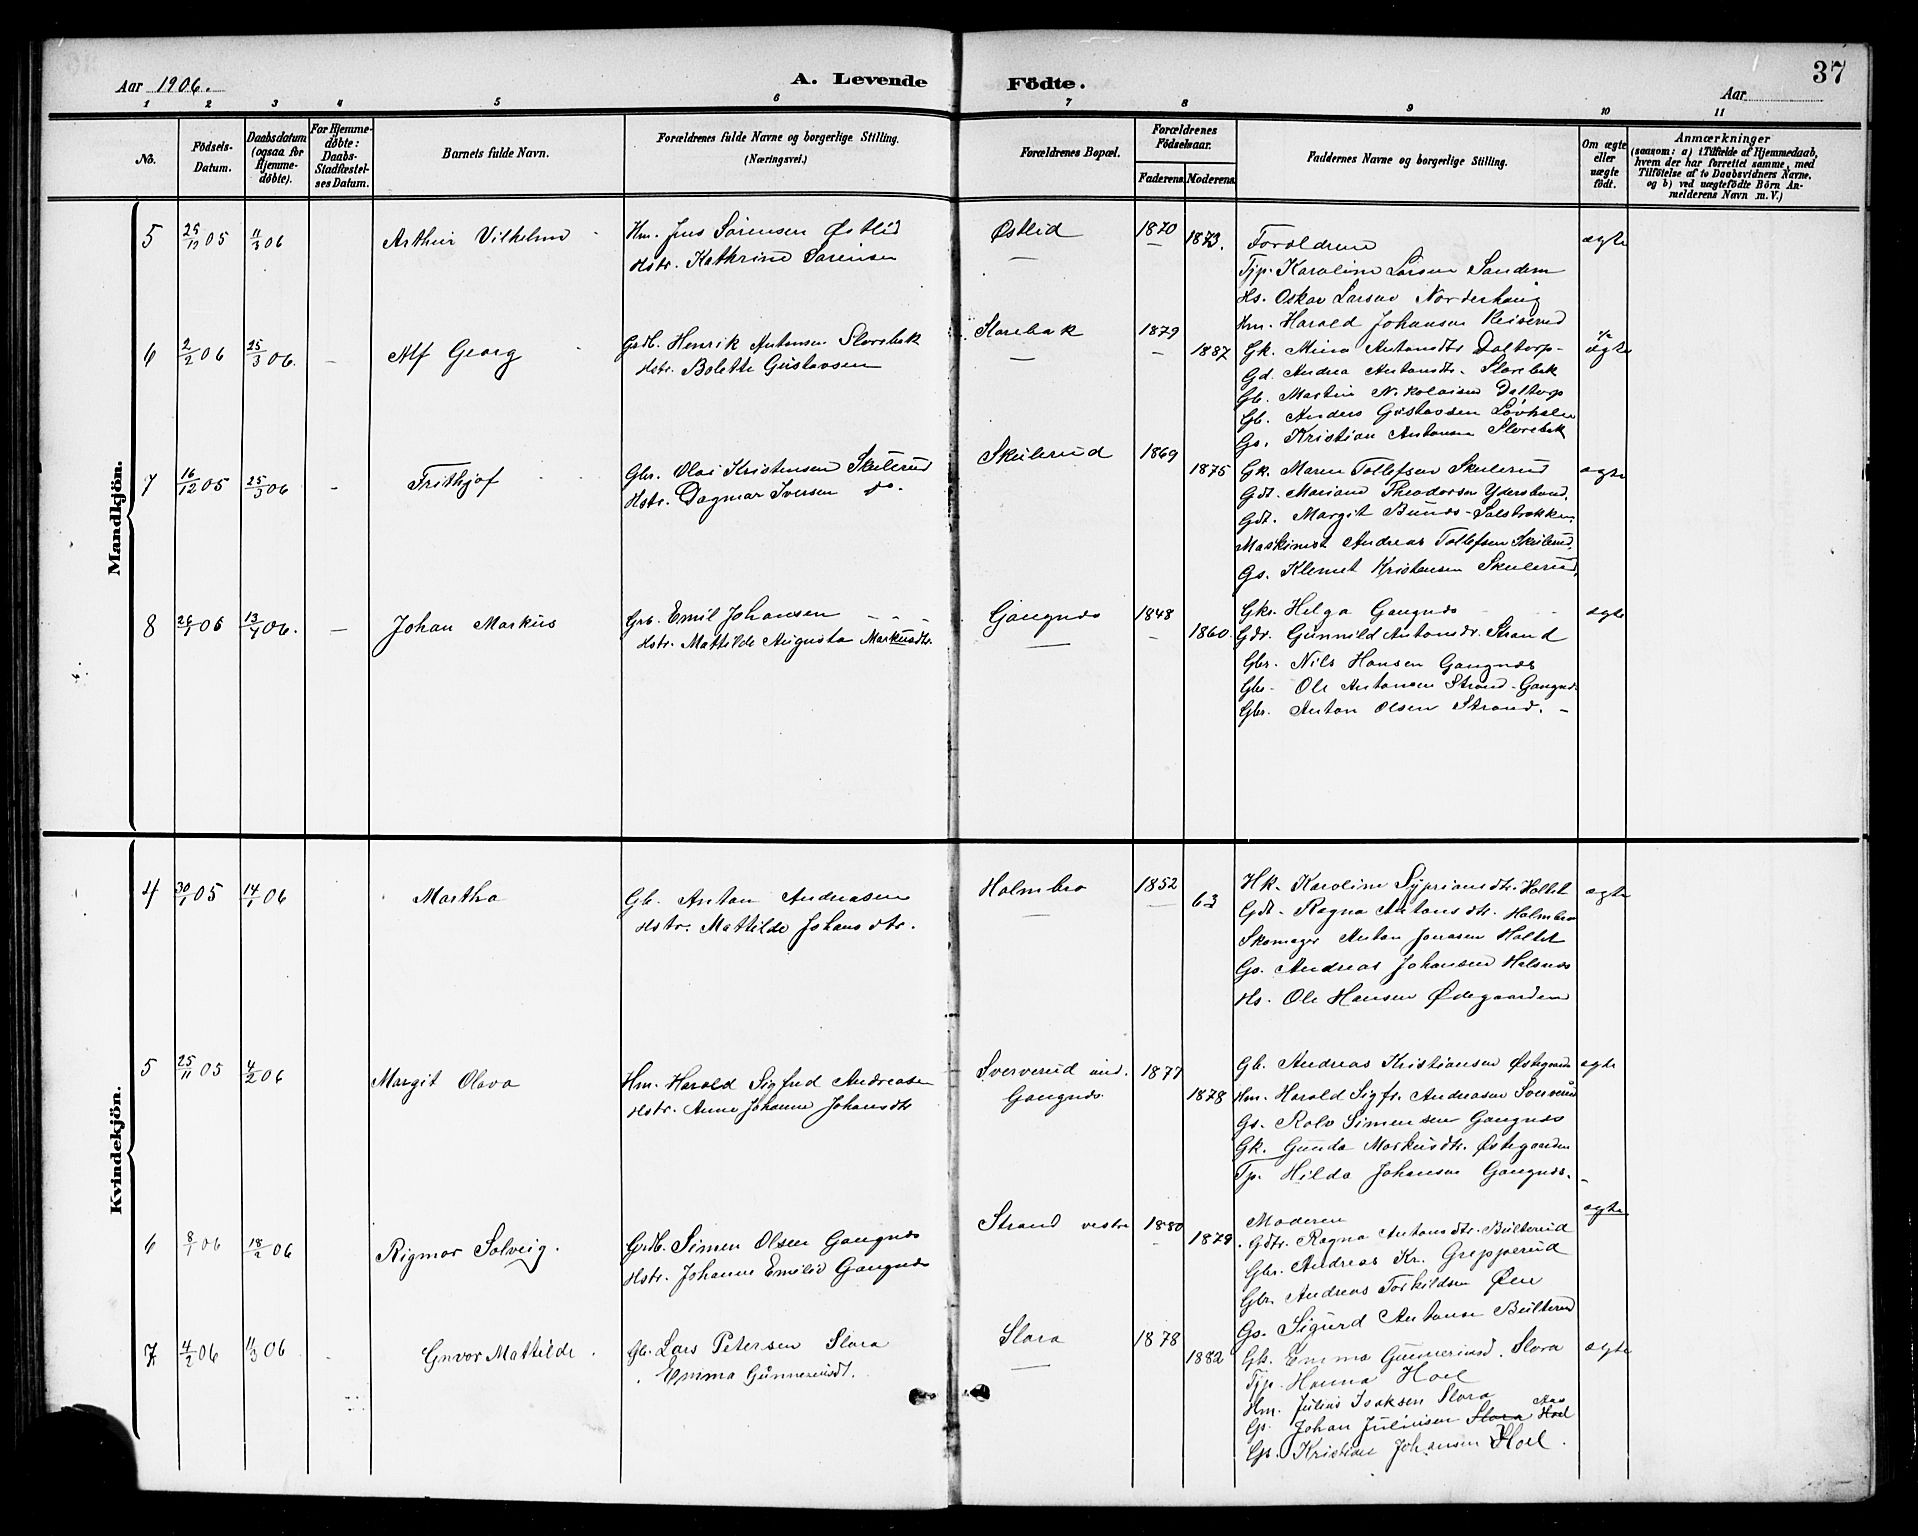 Aar 1906.
A. Levende Födte.
37
Aar
1 2 3 4 5 6 7 8 9 10 11
No.
Födsels-
Datum.
Daabsdatum
(ogsaa for
Hjemme-
döbte).
For Hjemme-
döbte:
Daabs-
Stadfæstel-
ses Datum.
Barnets fulde Navn.
Forældrenes fulde Navne og borgerlige Stilling.
(Næringsvei.)
Forældrenes Bopæl.
Forældrenes
Födselsaar.
Faderens. Moderens.
Faddernes Navne og borgerlige Stilling.
Om ægte
eller
uægte
födt.
Anmærkninger
(saasom: a) i Tilfælde af Hjemmedaab,
hvem der har forrettet samme, med
Tilföielse af to Daabsvidners Navne,
og b) ved uægtefödte Börn An-
melderens Navn m. V.)
Mandkjön.
5 25/11 05 11/3 06 Arthur Vilhelm
Hm. Jens Sørensen Østlid
Hstr. Kathrine Sørensen
Østlid 1870 1873.
Forældrene
Tjp. Karoline Larsen Sandem
Hs. Oskar Larsen Norderhaug
Hm. Harald Johansen Reiserud
ægte
6 2/2 06 25/3 06. - Alf Georg
Grdb. Henrik Antonsen Slorebæk
Hstr. Bolette Gustavsen
Slorebæk 1879 1887
Gk. Mina Antonsdtr. Daltorp-
Gd. Andrea Antonsdtr. Slorebæk
Gb. Martin Nikolaisen Daltorp
Gb. Anders Gustavsen Løvholen
Gs. Kristian Antonsen Slorebæk
ægte
7 16/12 05 25/3 06 - Frithjof
Gbr. Olai Kristensen Skulerud
Hstr. Dagmar Iversen do.
Skulerud 1869 1875
Gk. Maren Tollefsen Skulerud
Gdt. Mariane Theodorsen
Gdt. Margit
Maskinist Andreas Tollefsen Skulerud.
Gs. Klemet Kristensen Skulerud.
ægte
8 26/1 06 13/4 06. - Johan Markus
Grb. Emil Johansen
Hstr. Mathilde Augusta Markusdtr.
Gangnæs 1848 1860.
Gks. Helga Gangnæs
Gdr. Gunnild Antonsdr. Strand
Gbr. Nils Hansen Gangnæs
Gbs. Ole Antonsen Strand-Gangnæs
Gbr. Anton Olsen Strand. -
ægte
Kvindekjön.
4 30/1 05 14/1 06 Martha
Gb. Anton Andreasen
Hstr. Mathilde Johansdtr.
Holmbro 1852 63
Hk. Karoline Sypriansdtr. Holtet
Gdt. Ragna Antonsdtr. Holmbro
Skomager Anton Jonasen Holtet
Gs. Andreas Johansen Halsnæs
Hs. Ole Hansen Ødegaarden
ægte
5 25/11 05 4/2 06 Margit Olava
Hm. Harald Sigfred Andreasen
Hstr. Anne Johanne Johansdtr
Sververud und.
Gangnæs. 1877 1878
Gb. Andreas Kristiansen Østegaarden
Hm. Harald Sigfr. Andreasen Sververud
Gs. Rolv Simensen Gangnæs
Gk. Gunda Markusdtr. Østegaarden
Tp. Hilda Johansen Gangnæs. -
ægte
6 8/1 06 18/2 06 Rigmor Solveig.
Grdb. Simen Olsen Gangnæs
Hstr. Johanne Emilie Gangnæs
Strand vestre 1880 1879
Moderen
Gdtr. Ragna Antonsdtr. Bulterud
Gbr. Andreas Kr. Grepperud
Gbr. Andreas Torkildsen Øen
Gs. Sigurd Antonsen Bulterud
ægte
7 4/2 06 11/3 06 Gnvor Mathilde.
Gb. Lars Petersen Slora
Emma Gunneriusdt.
Slora 1878 1882
Gk. Emma Gunneriusd. Slora
Tjp. Hanna Hoel
Hm. Julius Isaksen Slora
Gs. Johan Juliusen Slora Hoel
Gs. Kristian Johansen Hoel.
ægte